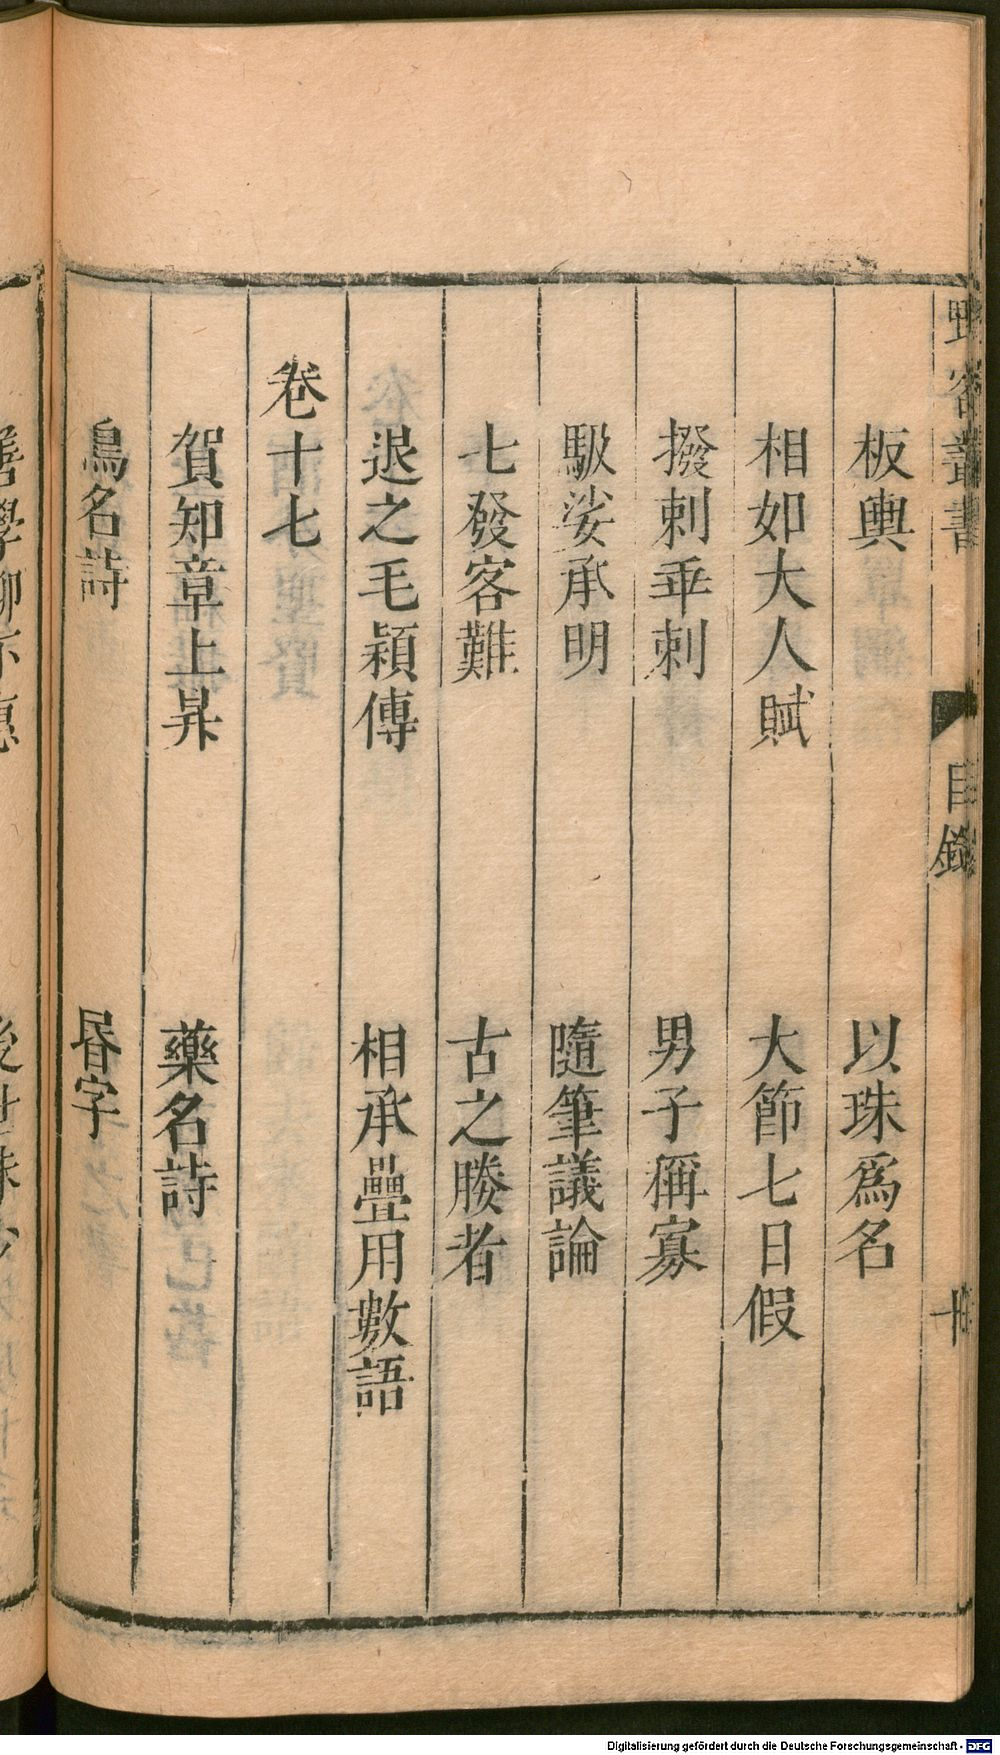 野客叢書
目錄
十
板輿　以珠爲名
相如大人賦　大節七日假
撥剌乖剌　男子稱寡
馺娑承明　隨筆議論
七發客難　古之勝者
退之毛穎傳　相承疊用數語
卷十七
賀知章上昇　藥名詩
鳥名詩　昬字
Digitalisierung gefördert durch die Deutsche Forschungsgemeinschaft - DFG